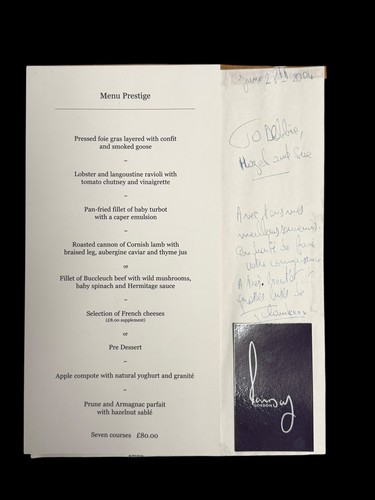 Menu Prestige
Pressed foie gras layered with confit
and smoked goose
~
Lobster and langoustine ravioli with
tomato chutney and vinaigrette
~
Pan-fried fillet of baby turbot
with a caper emulsion
~
Roasted cannon of Cornish lamb with
braised leg, aubergine caviar and thyme jus
or
Fillet of Buccleuch beef with wild mushrooms,
baby spinach and Hermitage sauce
~
Selection of French cheeses
(£8.00 supplement)
or
Pre Dessert
~
Apple compote with natural yoghurt and granité
~
Prune and Armagnac parfait
with hazelnut sablé
Seven courses £80.00
2004
To Debbie,
Hazel and Sue
Avec tous mes
meilleurs souvenirs.
votre
A très bientôt
GORDON
ramsay